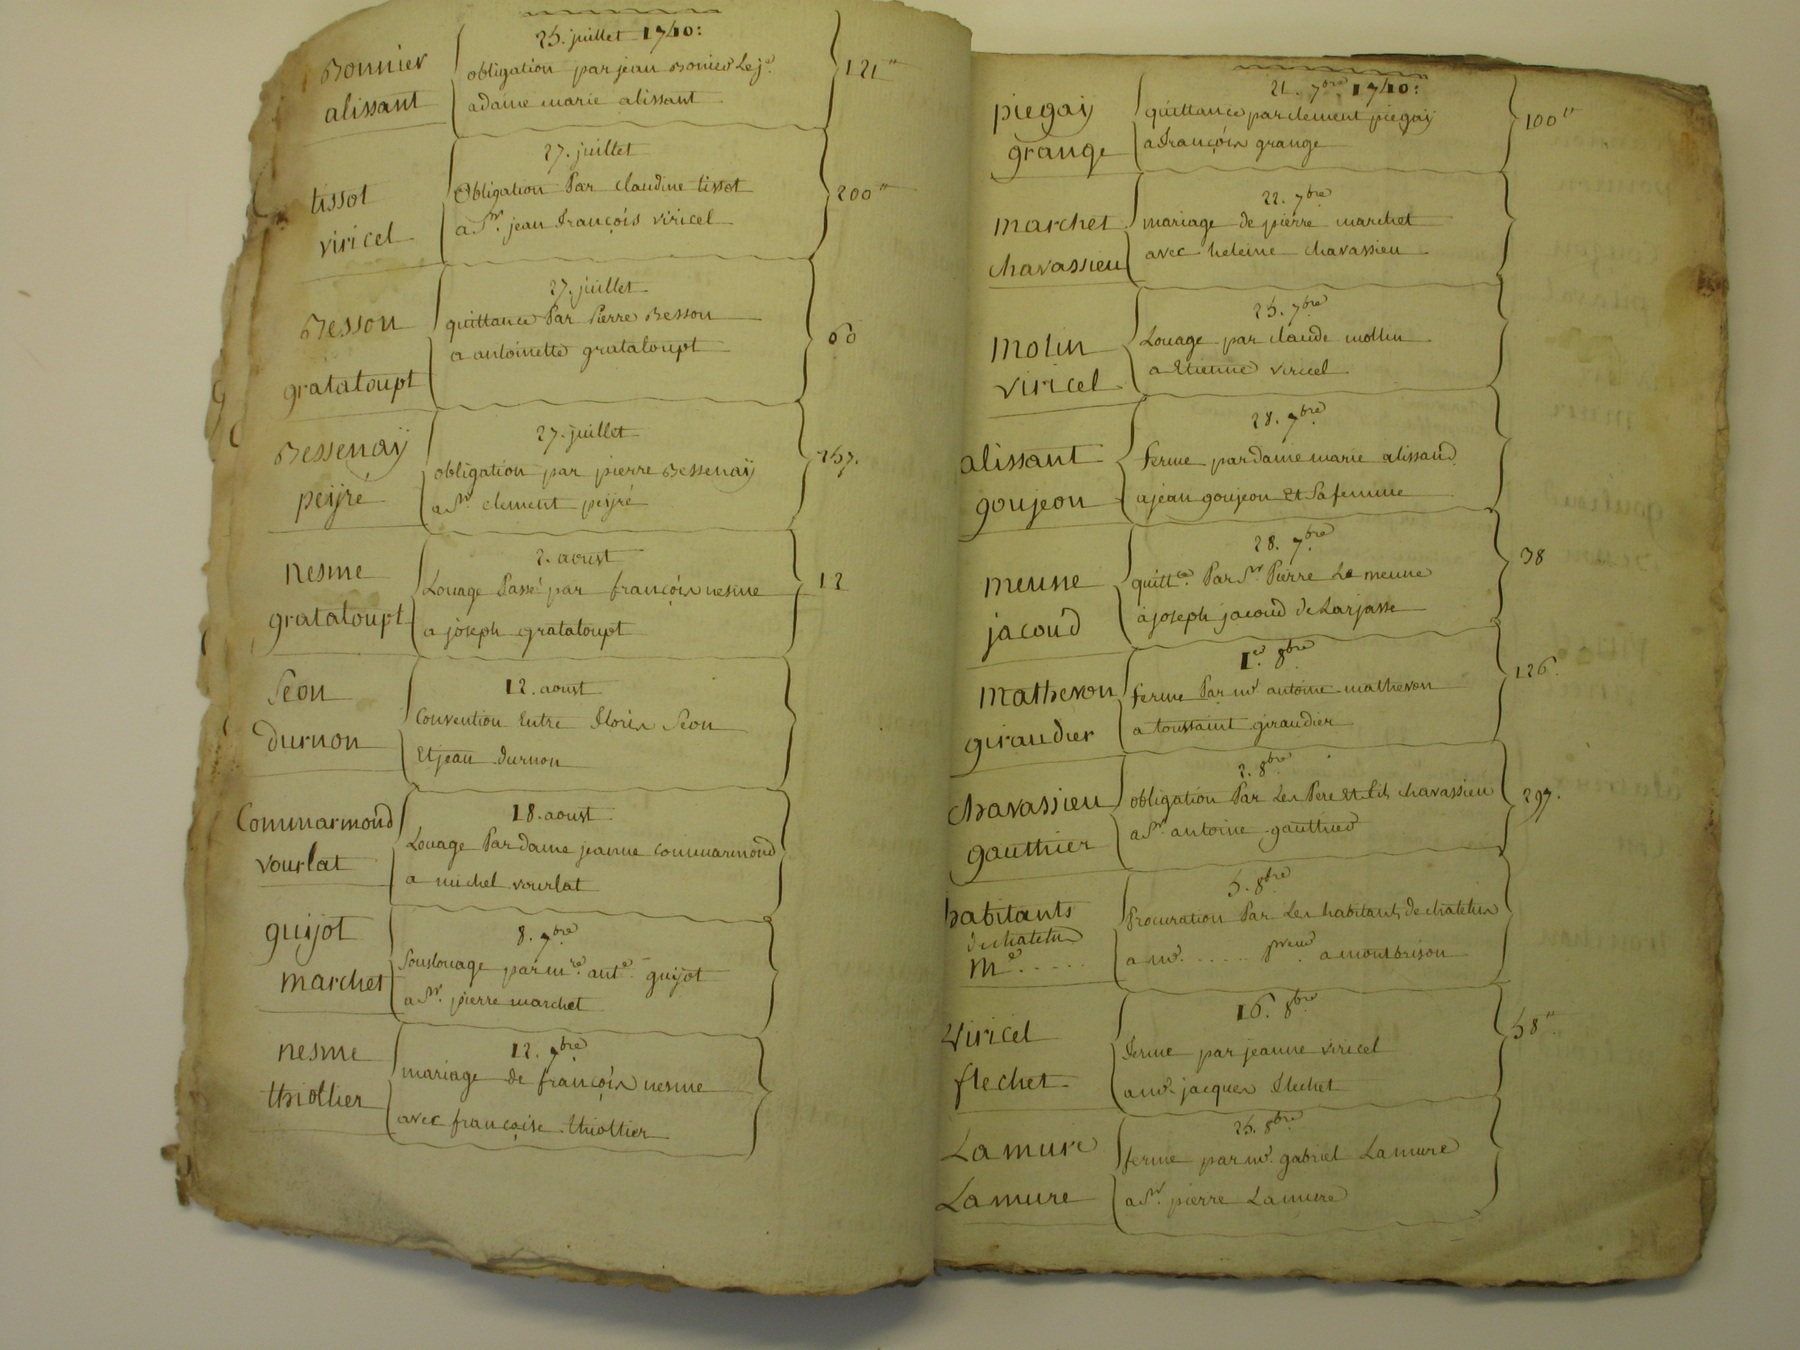 25. juillet 1740:
Bonnier
obligation par jean Bonier Le je.
121"
alissant
adame marie alissant
27. juillet
tissot
Obligation Par claudine tissot
200"
viricel
a Sr. jean françois viricel
27. juillet
Besson
quittance Par Pierre Besson
60
grataloupt
a antoinette grataloupt
27. juillet
Bessenaÿ
obligation par pierre Bessenaÿ
peÿré
a Sr. clement peÿré
2. aoust
nesme
Louage Passé par françois nesme
12
grataloupt
a joseph grataloupt
12. aoust
Seon
Convention Entre floris Seon
durnon
Et jean durnon
18. aoust
Commarmond
Louage Par dame jeanne commarmond
vourlat
a michel vourlat
8. 7bre
guijot
souslouage par mre. ante. guijot
marchet
a Sr. pierre marchet
12. 7bre
nesme
mariage de françois nesme
thiollier
avec françoise thiollier
21. 7bre 1740:
piegaÿ
quittance par clement piegaÿ
100"
grange
a françois grange
22. 7bre
marchet
mariage de pierre marchet
chavassieu
avec heleine chavassieu
25. 7bre
molin
Louage par claude mollin
viricel
a Etienne viricel
28. 7bre
alissant
ferme par dame marie alissand
goujeon
a jean goujeon Et Sa femme
28. 7bre
meune
quittce. Par Sr Pierre Le meune
38
jacoud
a joseph jacoud de Larjasse
1er. 8bre
Mathevon
ferme Par mr antoine mathevon
126.
giraudier
a toussaint giraudier
2. 8bre
chavassieu
obligation Par Les Pere Et fils chavassieu
297.
gauthier
a Sr. antoine gauthier
5. 8bre
habitants
Procuration Par Les habitants de chatelus
de chatelus
me. . . . . .
a me. . . . . . preur. a montbrison
16. 8bre
Viricel
ferme par jeanne viricel
58"
flechet
a me. jacques flechet
25. 8bre
Lamure
ferme par mr. gabriel Lamure
Lamure
a Sr. pierre Lamure